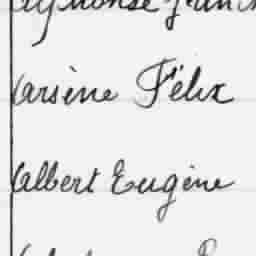 Alphonse
Arsène Félix
Albert Eugène